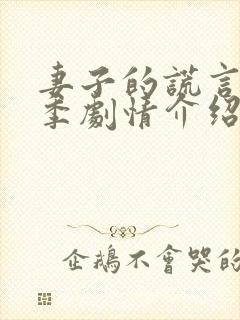 妻子的謊言
季劇情介紹
企鵝不會哭的